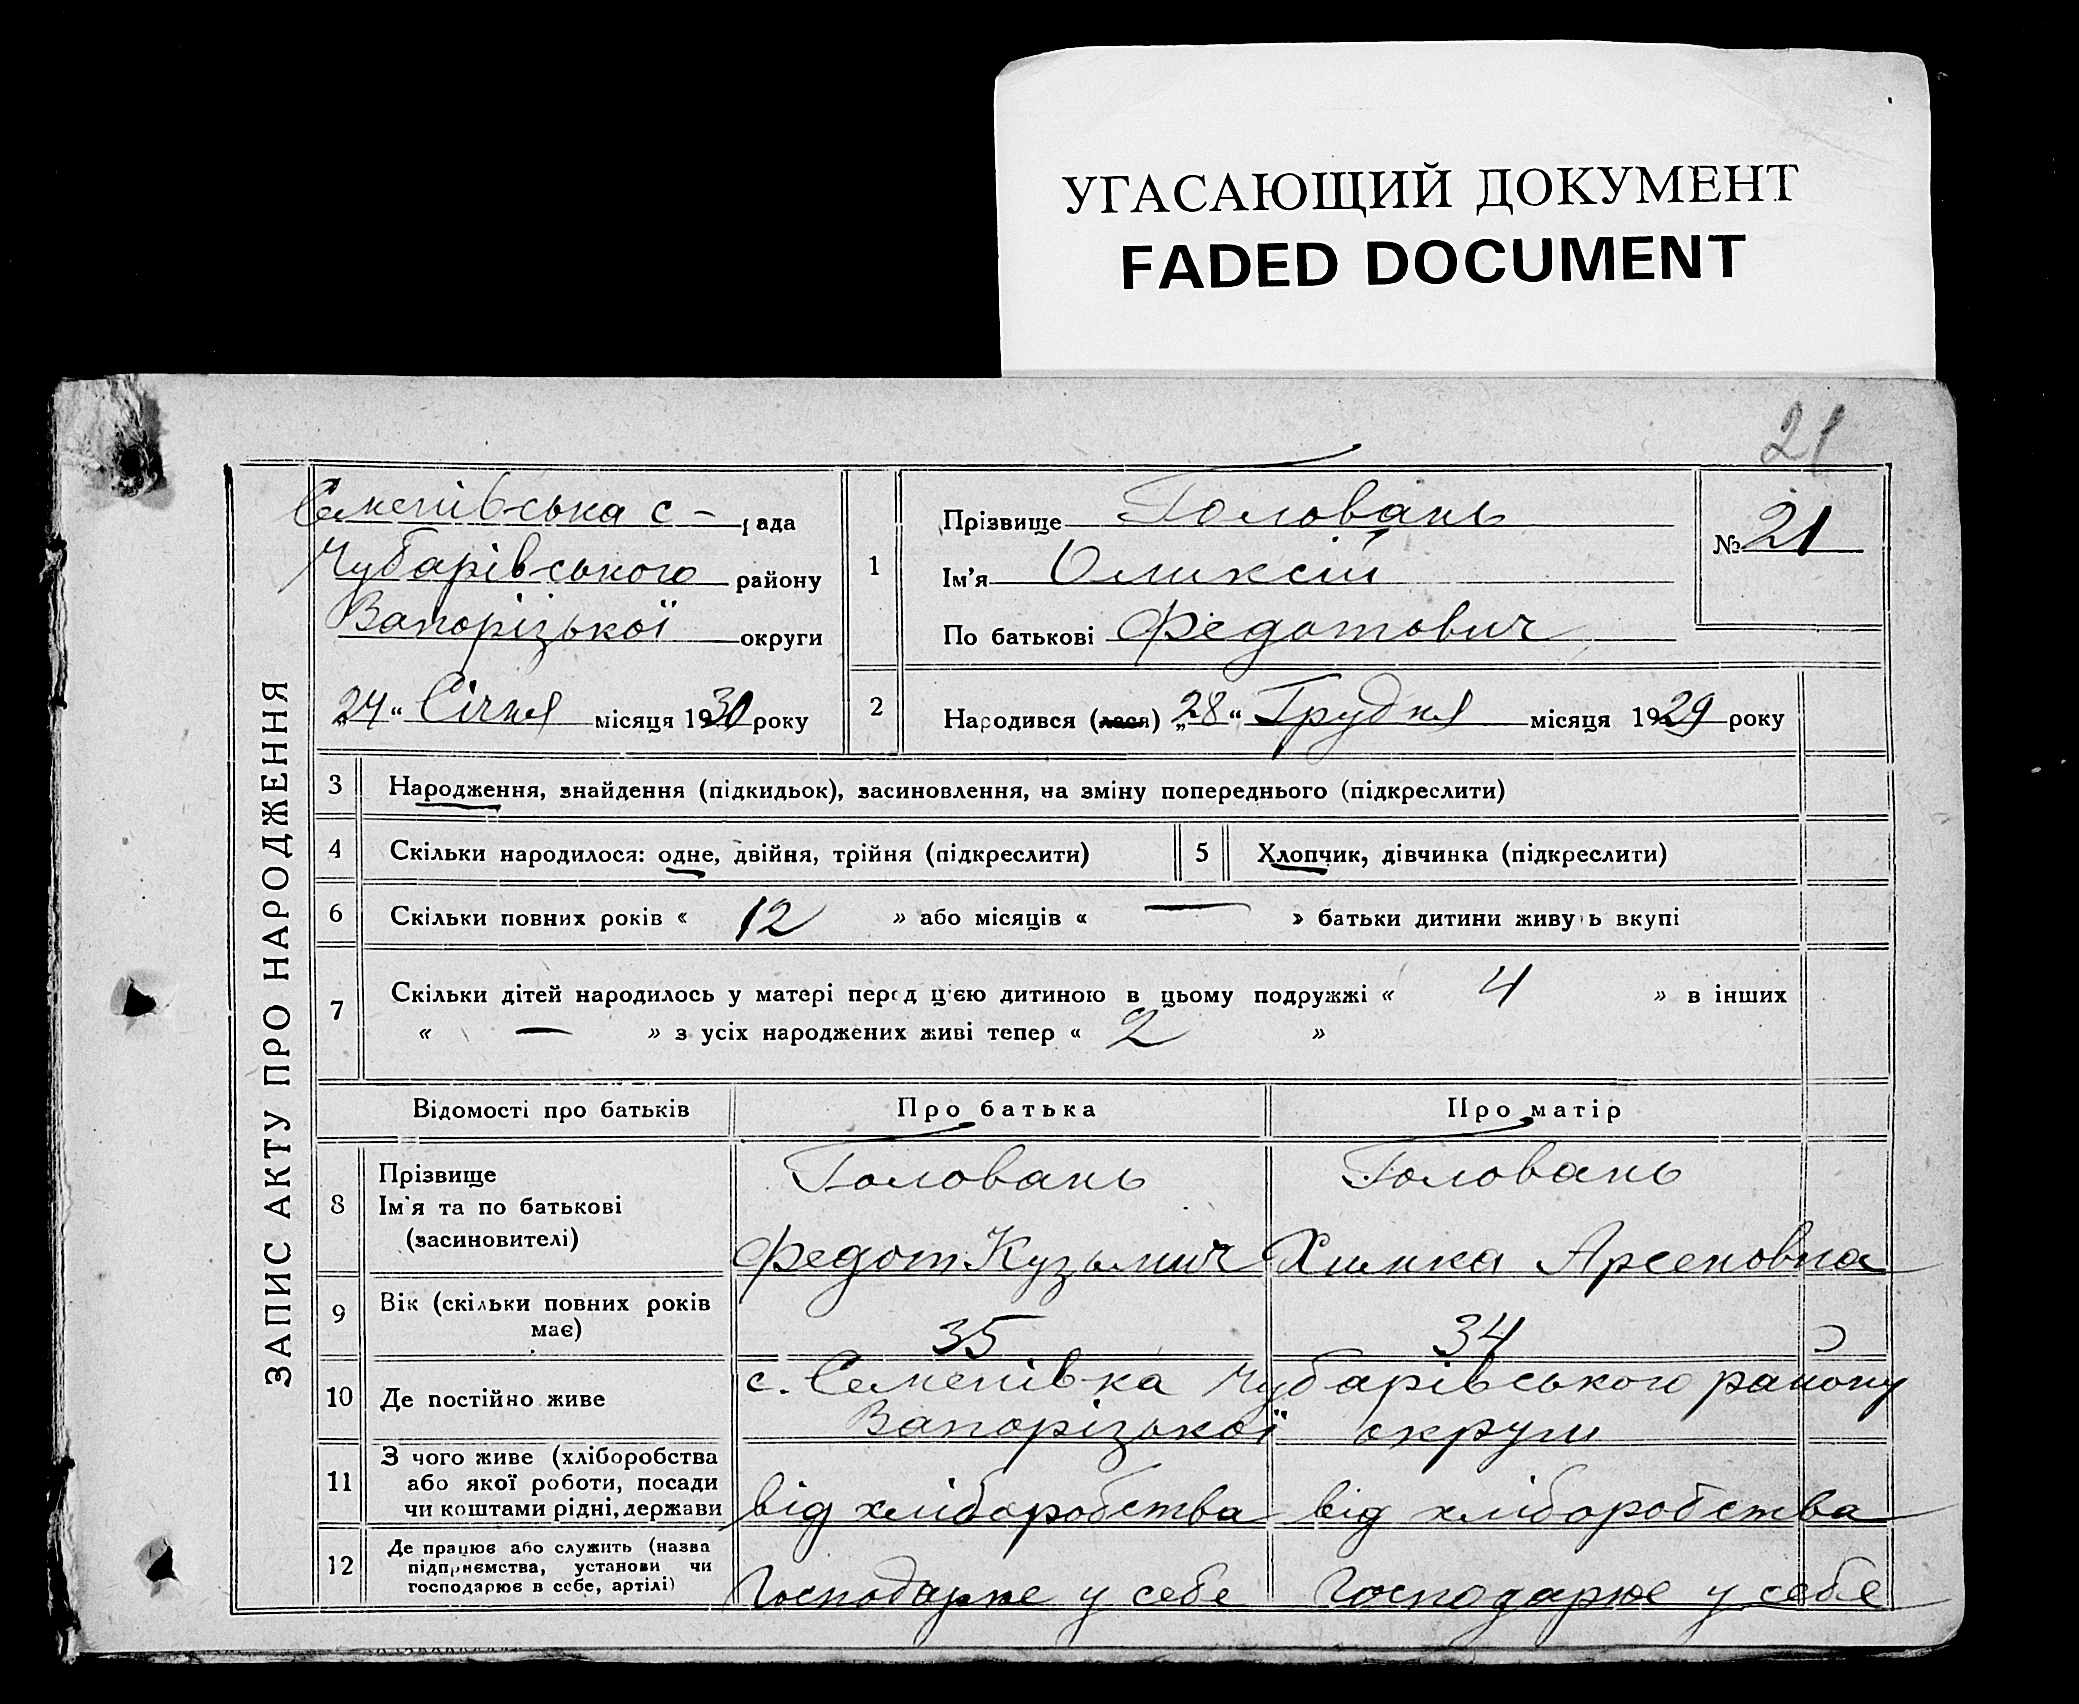 УГАСАЮЩИЙ ДОКУМЕНТ
FADED DOCUMENT
21
ЗАПИС АКТУ ПРО НАРОДЖЕННЯ
Семенівська с - рада
Чубарівського району
Запорізької округи
„24“ Січня місяця 1930 року
1
Прізвище Головань
Ім'я Оликсій
По батькові Федотович
№ 21
2
Народився (лася) „28“ Грудня місяця 1929 року
3 Народження, знайдення (підкидьок), засиновлення, на зміну попереднього (підкреслити)
4 Скільки народилося: одне, двійня, трійня (підкреслити) 5 Хлопчик, дівчинка (підкреслити)
6 Скільки повних років « 12 » або місяців « — » батьки дитини живуть вкупі
7 Скільки дітей народилось у матері перед цією дитиною в цьому подружжі « 4 » в інших
« — » з усіх народжених живі тепер « 2 »
Відомості про батьків Про батька Про матір
8 Прізвище
Ім'я та по батькові
(засиновителі)
Головань
Федот Кузьмич
Головань
Химка Арсеновна
9 Вік (скільки повних років
має)
35 34
10 Де постійно живе
с. Семенівка Чубарівського району
Запорізької округи
11 З чого живе (хліборобства
або якої роботи, посади
чи коштами рідні, держави
від хліборобства від хліборобства
12 Де працює або служить (назва
підприємства, установи чи
господарює в себе, артілі)
Господарює у себе Господарює у себе